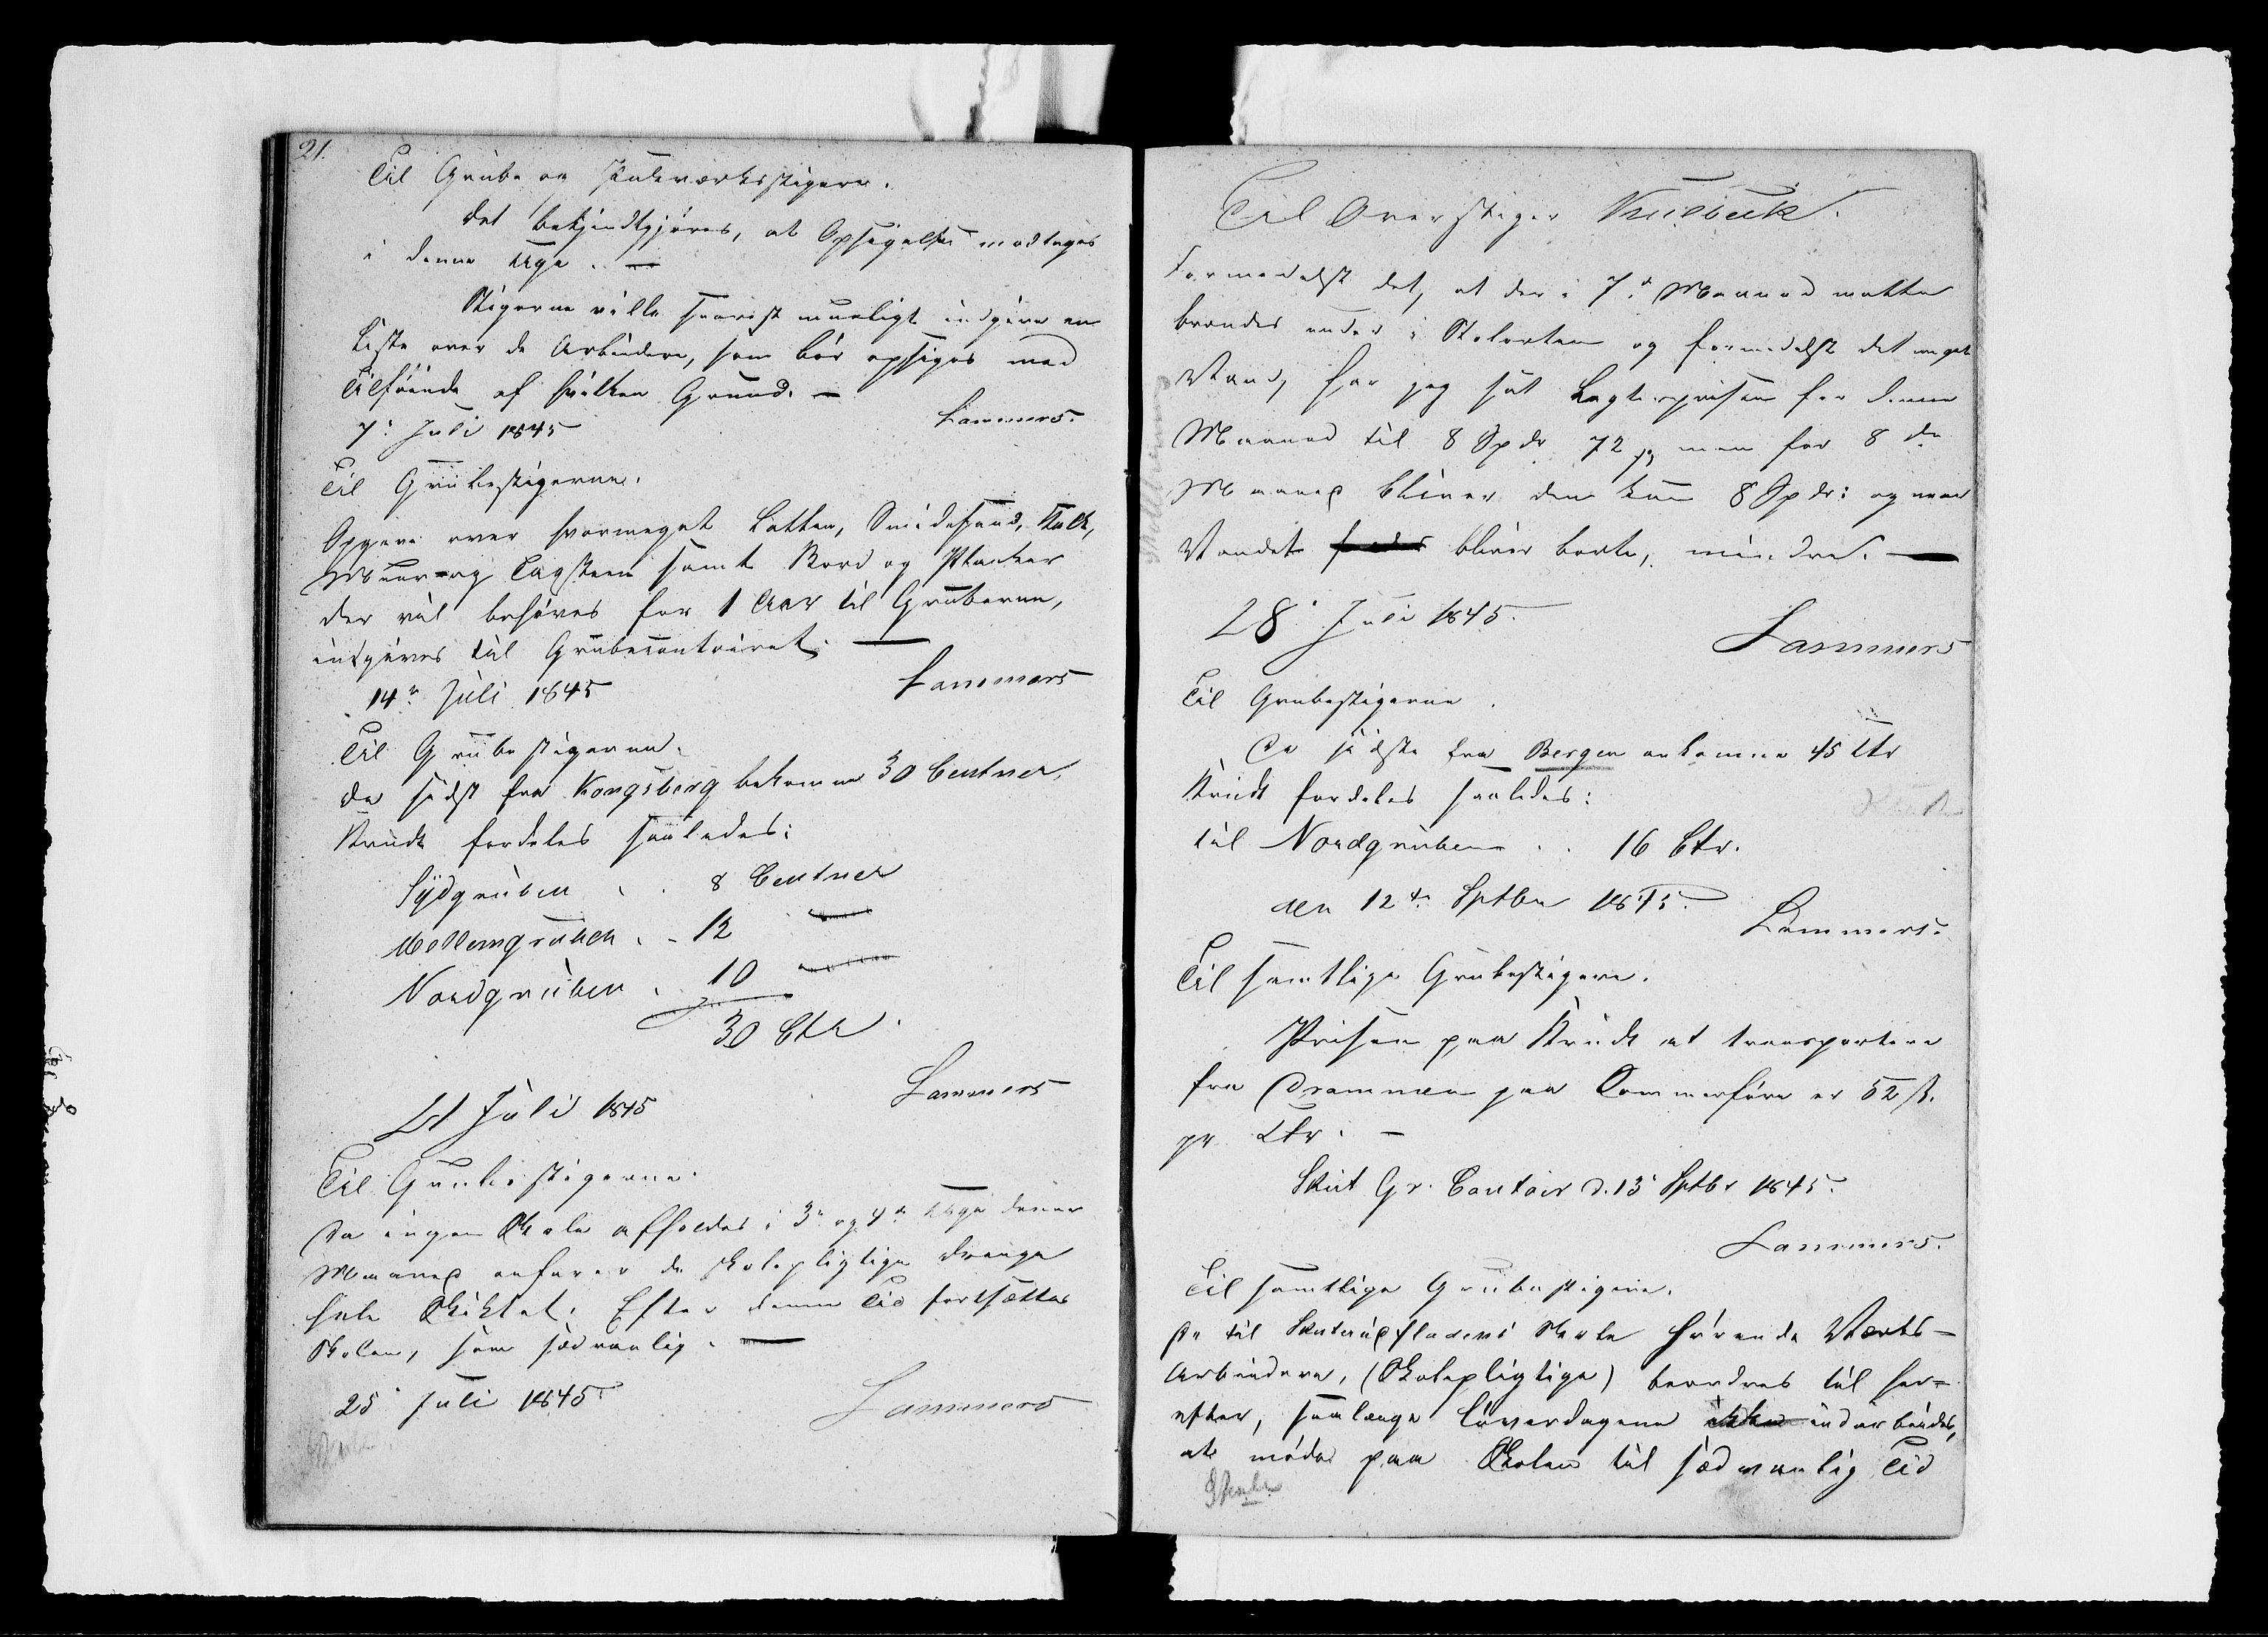 21.
Til Grube og Pukværksstigere.
Det bekjendtgjøres, at Opsigelser modtages
i denne Uge. —
Stigerne ville snarest mueligt indgive en
Liste over de Arbeidere, som bør opsiges med
Tilføiende af hvilken Grund. —
7de Juli 1845 Lammers.
Til Grubestigerne.
Opgave over hvormeget Latter, Smidesand, Kalk,
Muur- og Tagsteen samt Bord og Planker
der vil behøves for 1 Aar til Gruberne,
indgives til Grubecontoiret. —
14de Juli 1845 Lammers
Til Grubestigerne.
De sidst fra Kongsberg bekomne 30 Centner
Krudt fordeles saaledes:
Sydgruben . . 8 Centner
Mellemgruben . . 12 —
Nordgruben . . 10 —
30 Ctr.
21 Juli 1845 Lammers
Til Grubestigerne.
Da ingen Skole afholdes i 3de og 4de Uge denne
Maaned anfarer de skolepligtige Drenge
hele Skiktet. Efter denne Tid fortsættes
Skolen, som sædvanlig. —
25 Juli 1845 Lammers
Skole
Til Overstiger
Formedelst det, at der i 7de Maaned maatte
brændes under i Stolorten og formedelst det meget
Vand, har jeg sat Lagterprisen for denne
Maaned til 8 Spdr 72 ß men for 8de
Maaned bliver den kun 8 Spdr: og naar
Vandet bliver borte, mindre. —
28 Juli 1845. Lammers
Til Grubestigerne.
De sidste fra Bergen ankomne 45 Ctr
Krudt fordeles saaledes:
til Nordgruben . . 16 Ctr.
den 12te Sptbr 1845. Lammers.
Til samtlige Grubestigere.
Prisen paa Krudt at transportere
fra Drammen paa Sommerføre er 52 ß.
pr Ctr. —
Skut Gr. Contoir d. 13 Sptbr 1845.
Lammers.
Til samtlige Grubestigere.
De til Skuterudfladens Skole hørende Værks-
Arbeidere, (Skolepligtige) beordres til her-
efter, saalænge Løverdagene ikke indarbeides,
at møde paa Skolen til sædvanlig Tid
Skole